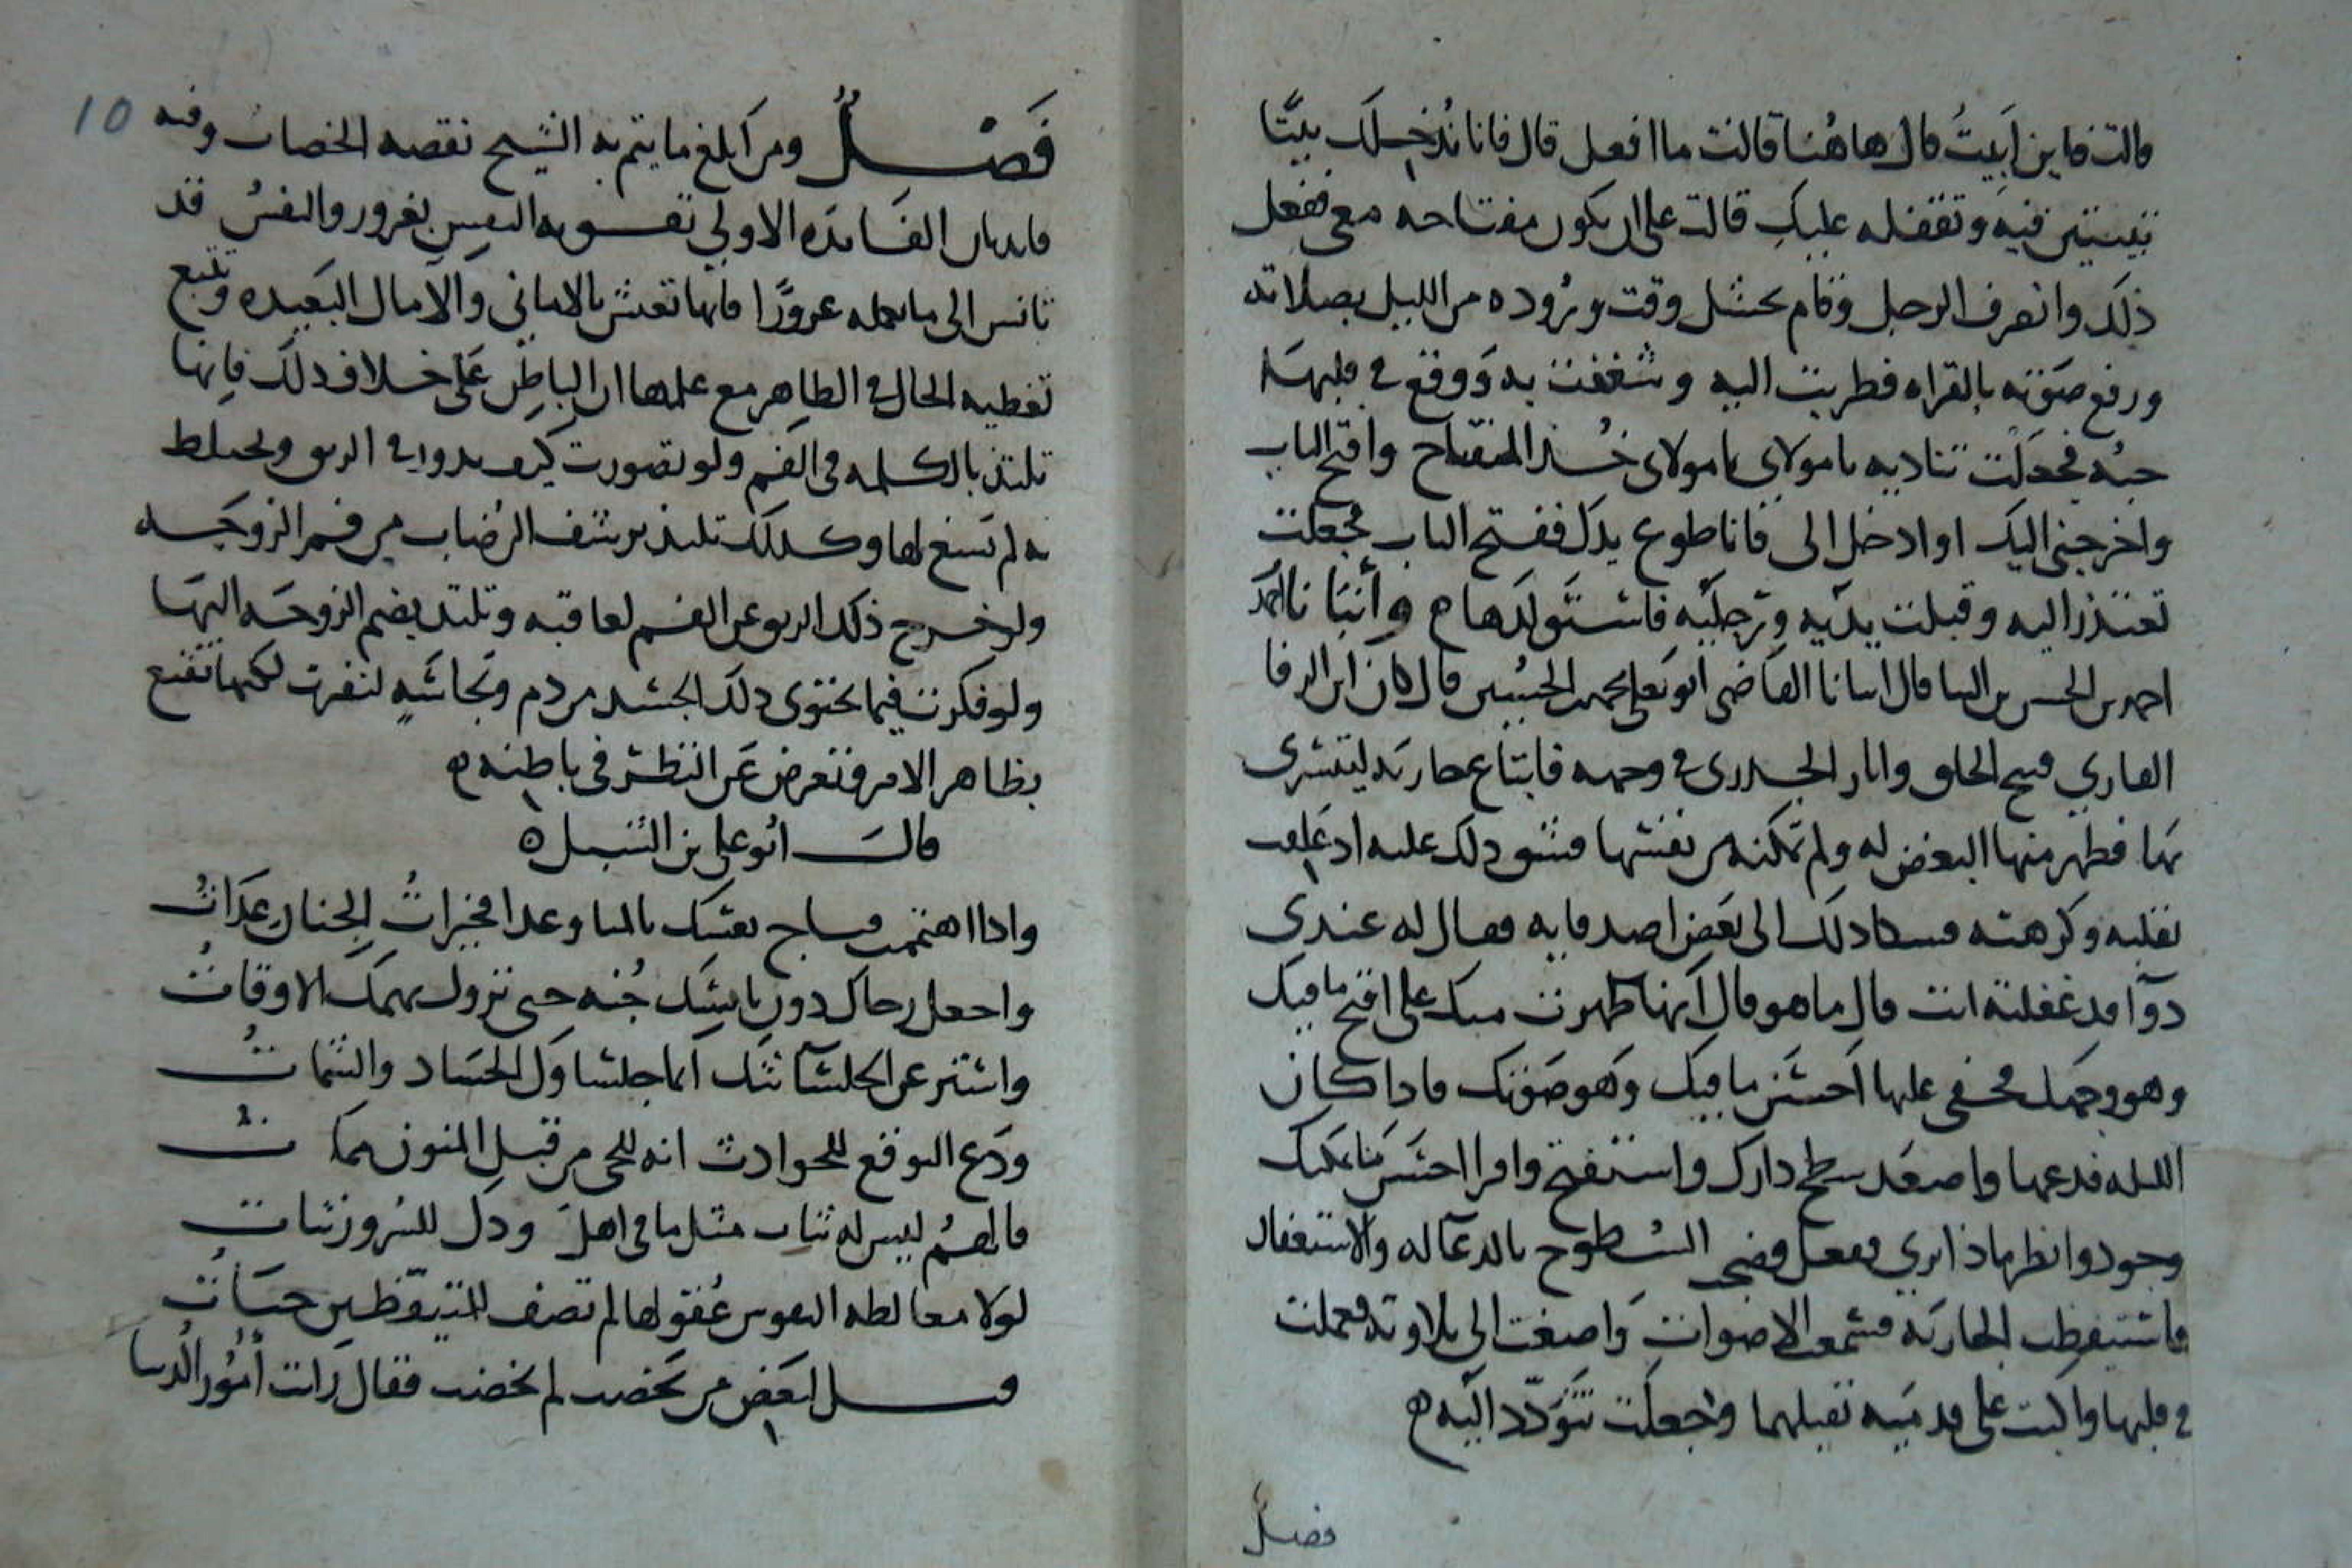 قالت فاين ابيتُ قال هاهُنا قالت ما افعل قال فانا نُدخلَك بيتًا
تبيتين فيه ونقفله عليكِ قالت على ان يكون مفتاحه معى ففعل
ذلك وانصرف الرجل وقام وقت وُروده من الليل بصلاته
ورفع صَوته بالقراه فطربت اليه وشغفت به وَوقع فى قلبهَا
حبُه فجعلَت تناديه يا مولاى يا مولاى خُذ المفتاح وافتح الباب
واخرجنى اليك او ادخل الى فانا طوع يدك ففتح الباب فجعلت
تعتذر اليه وقبلت يدَيه ورجليَه فاستَولدَها ه وأنبَانا احمَد
احمد بن الحسن بن البنا قال انبانا القاضى ابو يَعلى محمد بن الحسُين قال كان ابن الرفا
القارى قبيح الخلق واثار الجدرى فى وجهه فابتاع جاريَه ليتسرى
بهَا فظهر منها البغض له ولم تمكنه من نفسها فشق ذلك عليه اذ
بقلبه وكرهته فشكا ذلكَ الى بَعض اصدقايه فقال له عندى
دوآ قد غفلت انت قال ما هو قال انها ظهرت منك على اقبح ما فيك
وهو وجهك فخفى عليها احسَن ما فيك وهو صَوتك فاذا كان
الليله فدعها واصعَد سطح دارك واستفتح واقرا احسَن ما يمكنك
وجود وانظر ماذا ترى ففعل فضج السُطوح بالدعآ له والاستغفار
فاستيقظت الجاريَه فسمعت الاصوات وَاصغت الى تلاوته فعملت
فى قلبها واكبت على قدميَه تقبلهما وجعلت تتَودّد اليَه ه
فصل
10
فَصْلٌ ومن ابلغ ما يتم به الشيخ نقصه الخضاب وفيه
فايدتان الفَايدَه الاولى تقويه النفس بغرور والنفسُ قد
تانس الى ما تجعله غرورًا فانها تعيش بالامانى والآمال البَعيده وتتبع
تغطيه الحال فى الظاهِر مع علمها ان الباطِن عَلى خلاف ذلكَ فانها
تلتذ بالكلمه فى الفم ولو تصورت كيف يدور فى الريق ويختلط
به لم تسغ لها وكذلك تلتذ برشف الرُضاب من فم الزوجَه
ولو خرج ذلك الريق عن الفم لعافته وتلتذ بضم الزوجَه اليهَا
ولو فكرت فيما يحتوى ذلك الجسد من دم ونجَاسَهٍ لنفرت لكنها تقنع
بظاهر الامر وتعرض عَن النظر فى باطنه ه
قالَ ابُو على بن الشبل ه
واذا اهتممت فناج نفسَك بالمنا وعدا فخيراتُ الجنان عِدَاتُ
واجعل رجاك دون ياسِك جُنه حتى تزول بهمكَ الاوقاتُ
واستر عن الجلسآ بثك انما جلساوَك الحسَاد والشماتُ
ودَع التوقع للحوادث انه للحى من قبل المنون مماتُ
فالهمُ ليس له ثبات مثل ما فى اهل ودك للسُرور ثبات
لولا مغالطه النفوس عُقولها لم تصف للمتيقظين حيَاتُ
قيل لبَعض من يَخضب لم تخضب فقال رَات أُمُور الدُنيا